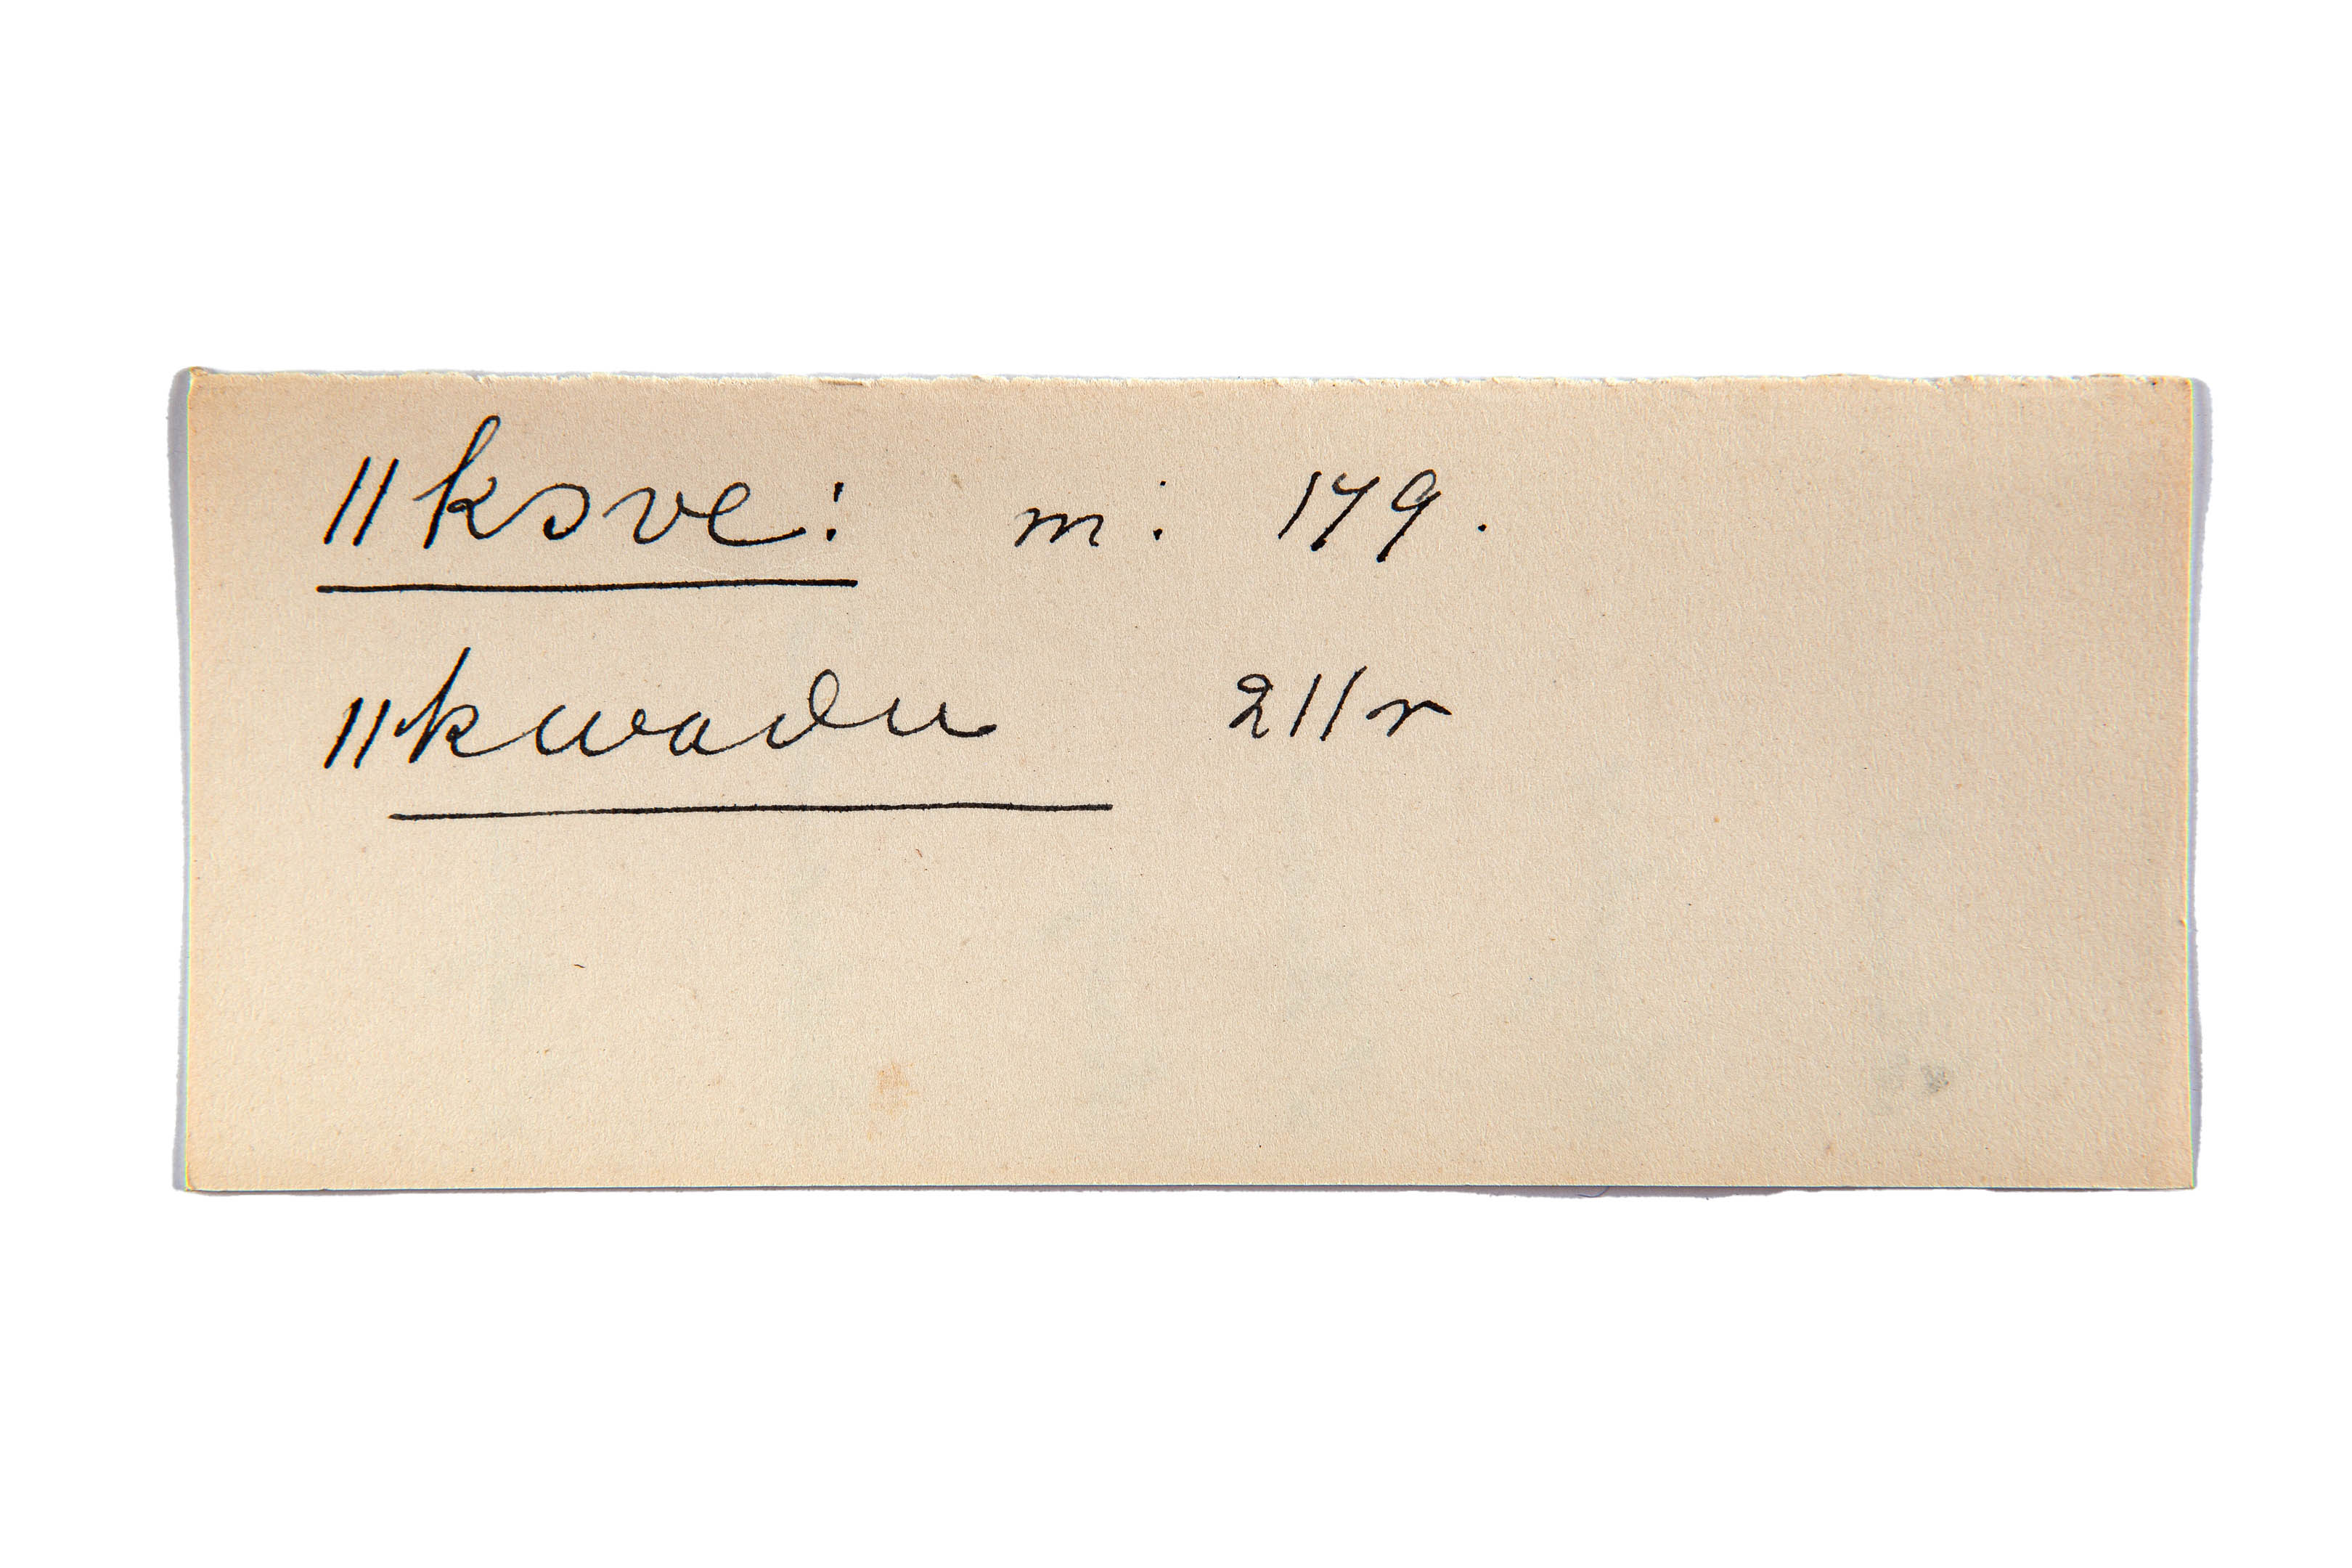 ǁksve: m: 179.
ǁkwadu 211r